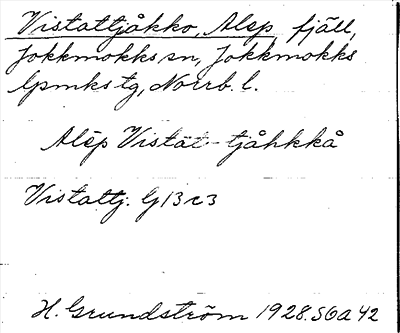 Vistattjåkko, Alep, fjäll,
Jokkmokks sn, Jokkmokks
lpmks tg, Norrb. l.
Alēp Vistāt-tjåhkkå
Vistattj. G13c3
H. Grundström 1928.56a42